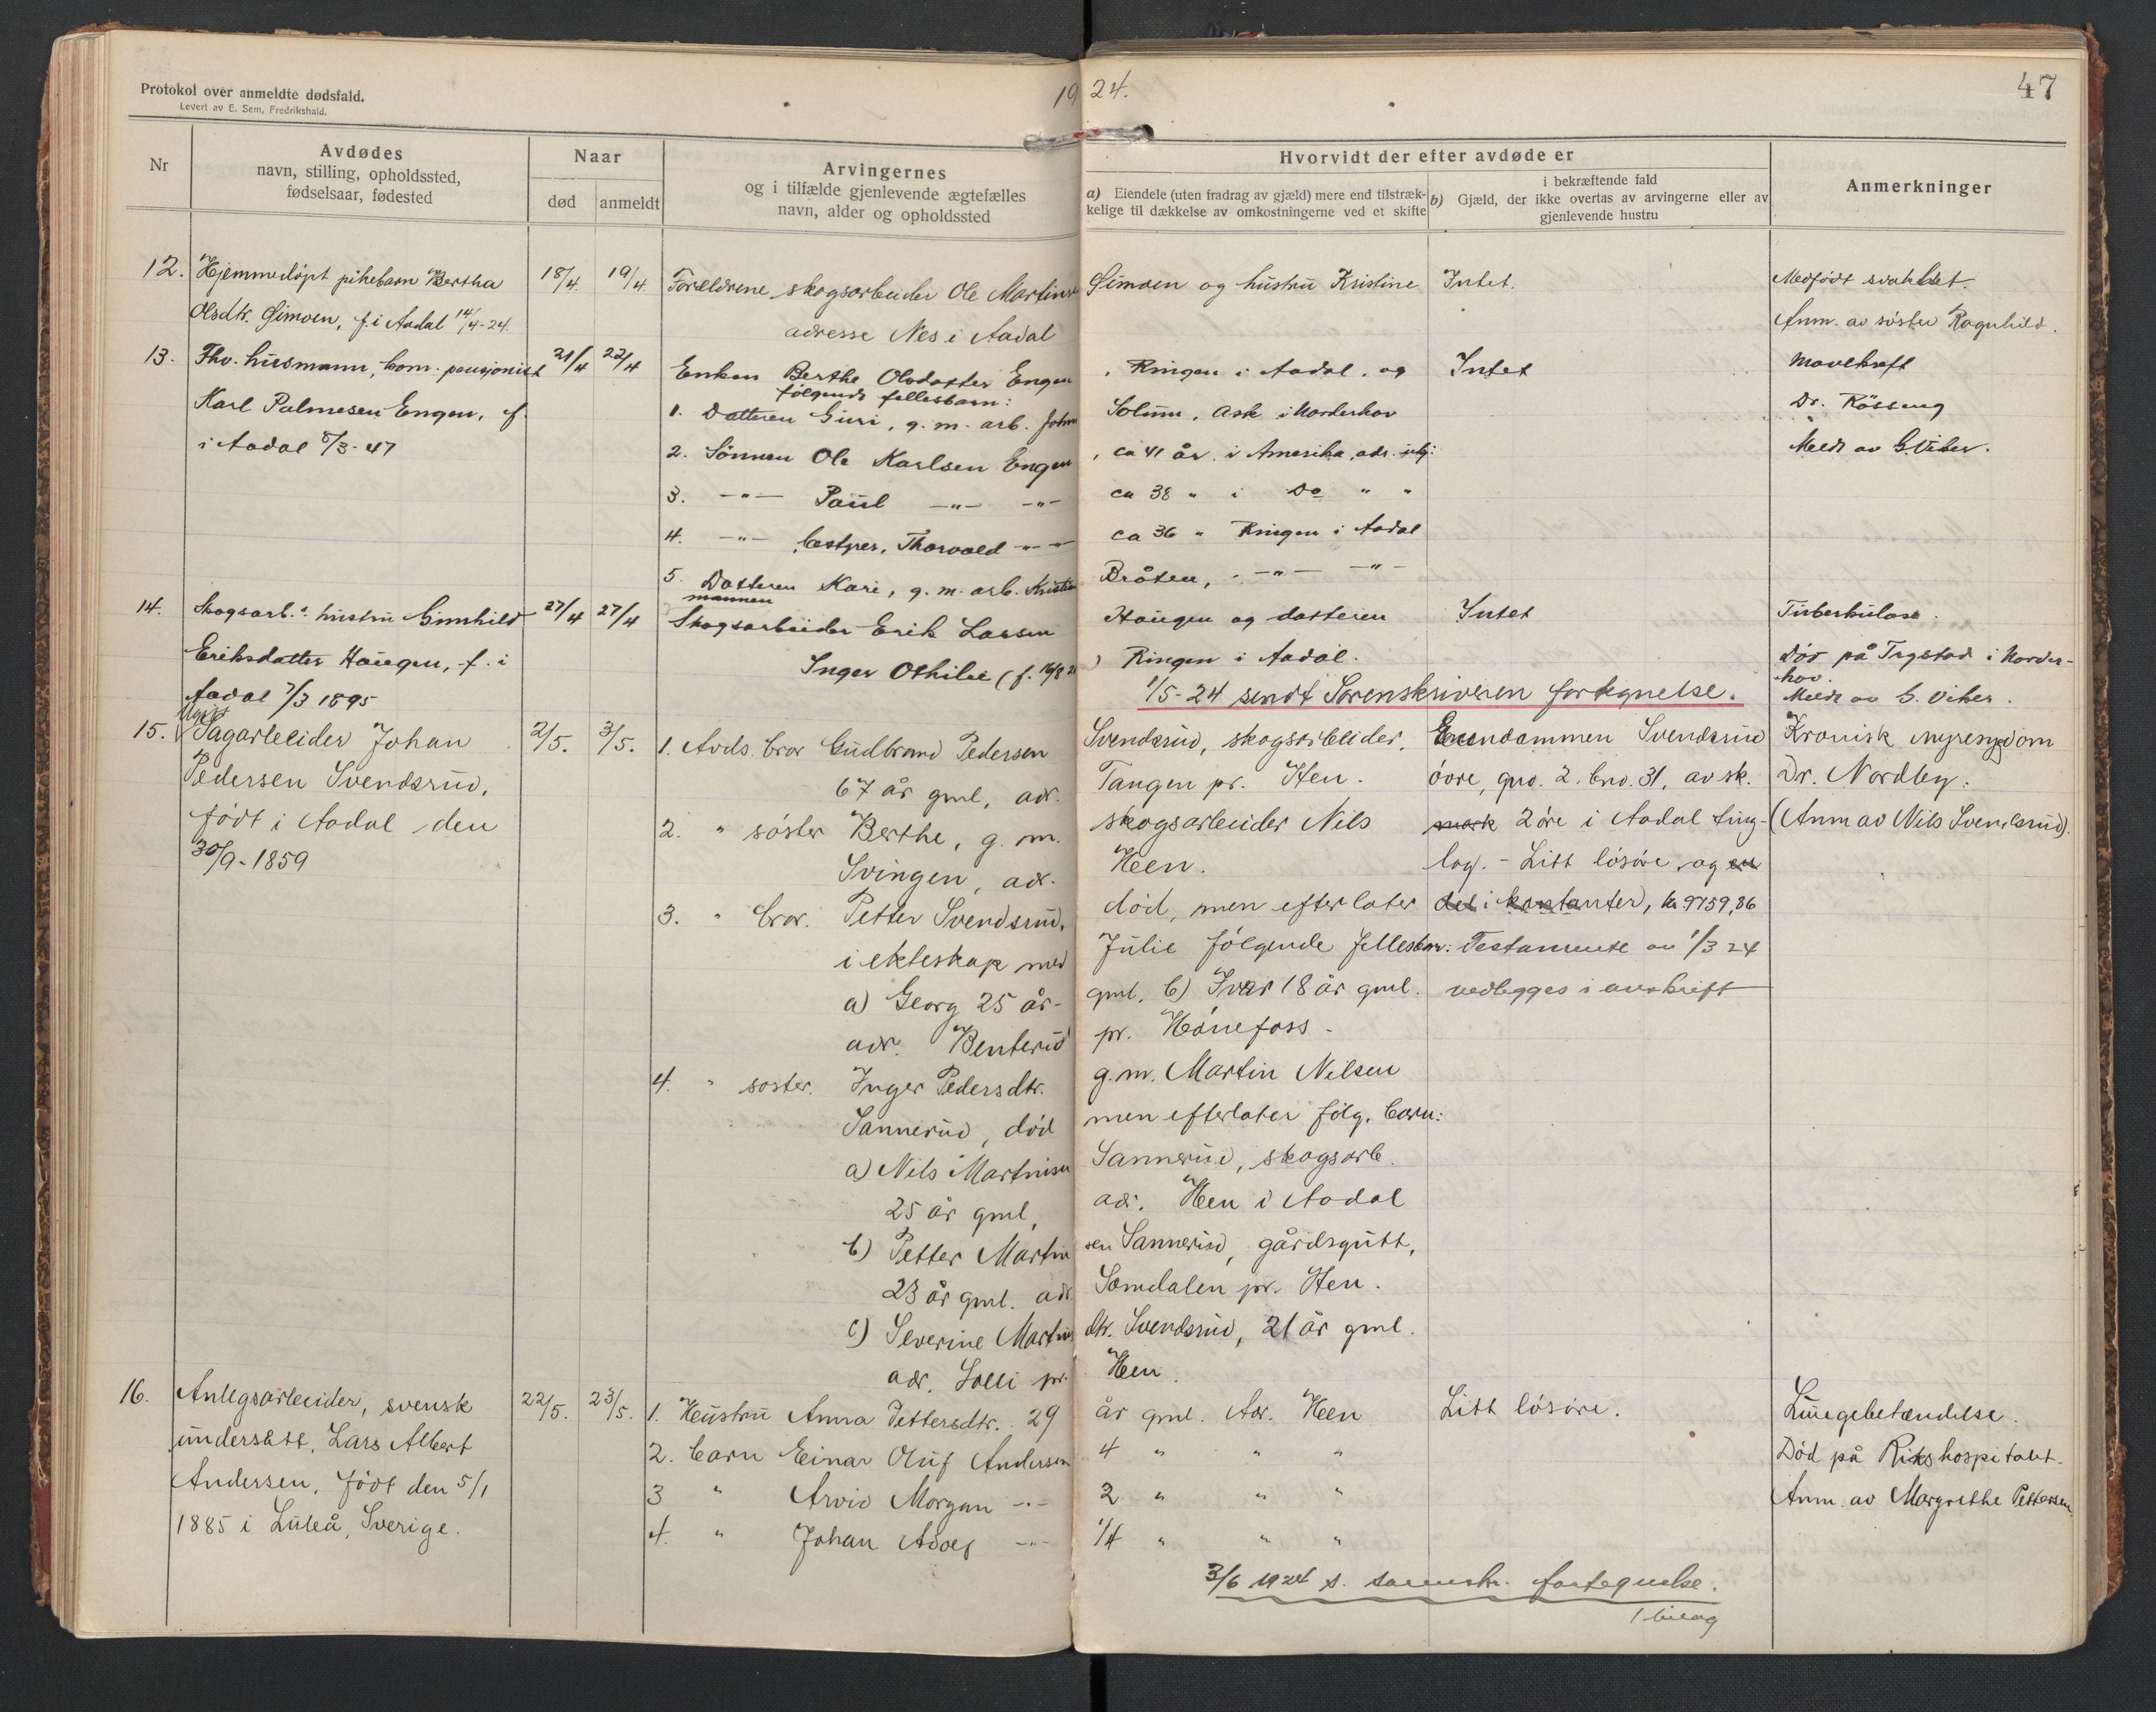 Protokol over anmeldte dødsfald.
Levert av E. Sem, Fredrikshald.
1924.
47
Nr
Avdødes
navn, stilling, opholdssted,
fødselsaar, fødested
Naar
død
anmeldt
Arvingernes
og i tilfælde gjenlevende ægtefælles
navn, alder og opholdssted
Hvorvidt der efter avdøde er
a) Eiendele (uten fradrag av gjæld) mere end tilstræk-
kelige til dækkelse av omkostningerne ved et skifte
i bekræftende fald
b) Gjæld, der ikke overtas av arvingerne eller av
gjenlevende hustru
Anmerkninger
12. Hjemmedøpt pikebarn Bertha 18/4 19/4 Forældrene skogsarbeider Ole Martinsen Simoen og hustru Kristine Intet. Medfødt svakhet.
Olsdtr. Simoen, f. i Aadal 14/4-24. adresse Nes i Aadal Anm. av søster Ragnhild.
13. Fhv. husmann, kom. pensjonist 21/4 22/4 Enken Berthe Olsdatter Engen, Ringen i Aadal. og Intet Mavekreft
følgende fellesbarn:
Karl Palmesen Engen, f. 1. Datteren Guri, g. m. arb. Johan Solum, Ask i Norderhov Dr. Rösseng
i Aadal 8/3-47 2. Sønnen Ole Karlsen Engen, ca 41 år i Amerika, adr. ubj: Meldt av G. Viker.
3. -"- Paul -"- -"- ca 38 " i Do " "
4. -"- Thorvald -"- ca 36 " Ringen i Aadal
5. Datteren Kari, g. m. arb. Kristian Bråten, -"- -"-
14. Skogsarb.s hustru Gunhild 27/4 27/4 mannen Skogsarbeider Erik Larsen Haugen og datteren Intet Tuberkulose.
Eriksdatter Haugen, f. i Inger Othilie (f. 16/8 ) Ringen i Aadal. Död på Trystad i Norder-
hov.
Aadal 7/3 1895 1/5-24 sendt Sorenskriveren fortegnelse. Meldt av G. Viker.
15. Ugift Sagarbeider Johan 2/5. 3/5. 1. Avds. bror Gudbrand Pedersen Svendsrud, skogsarbeider, Eiendommen Svendsrud Kronisk nyresygdom
Pedersen Svendsrud, 67 år gml, adr. Tangen pr. Hen. øvre, gno. 2. bno. 31, av sk. Dr. Nordby.
født i Aadal den 2. " søster Berthe, g. m. skogsarbeider Nils mark 2 øre i Aadal ting- (Anm av Nils Svendsrud).
30/9-1859 Svingen, adr. Heen. lag. - Litt løsøre og en
3. " bror. Petter Svendsrud, død, men efterlater del i kontanter, kr. 9759,86
i ekteskap med Julie følgende fellesbarn: Testamente av 1/3 24
a) Georg 25 år- gml, b) Ivar 18 år gml. vedlegges i avskrift
adr. Benterud pr. Hønefoss.
4. " søster. Inger Pedersdtr. g. m. Martin Nilsen
Sannerud, død men efterlater følg. barn:
a) Nils Martinsen Sannerud, skogsarb.
25 år gml, adr. Heen i Aadal
b) Petter Martinsen Sannerud, gårdsgutt,
23 år gml. adr Somdalen pr. Hen.
c) Severine Martinsdtr. Svendsrud, 21 år gml.
adr. Solli pr. Heen.
16. Anlegsarbeider, svensk 22/5. 23/5. 1. Hustru Anna Pettersdtr. 29 år gml. Adr. Heen Litt løsøre. Lungebetændelse.
undersått, Lars Albert 2. barn Einar Oluf Andersen 4 " " " Død på Rikshospitalet.
Andersen, født den 5/1 3 " Arvid Morgan -"- 2 " " " Anm. av Margrethe Pettersen
1885 i Luleå, Sverige. 4. " Johan Adolf -"- 1/4 " " "
3/6 1924 s. sorenskr. fortegnelse.
1 bilag